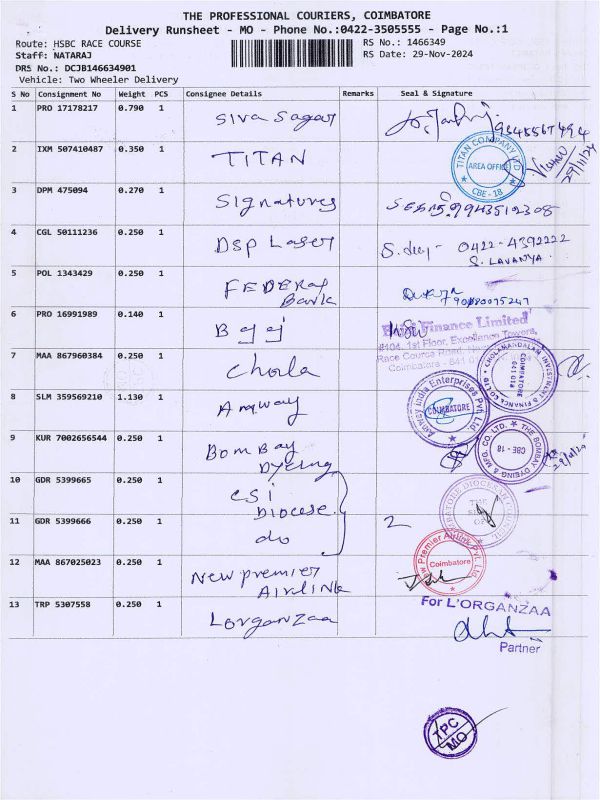 THE PROFESSIONAL COURIERS, COIMBATORE
Delivery Runsheet - MO - Phone No.:0422-3505555 - Page No.:1
Route: HSBC RACE COURSE
RS No.: 1466349
Staff: NATARAJ
RS Date: 29-Nov-2024
DRS No.: DCJB146634901
Vehicle: Two Wheeler Delivery
S No Consignment No Weight PCS Consignee Details Remarks Seal & Signature
1 PRO 17178217 0.790 1 Siva Sagar
2 IXM 507410487 0.350 1 TITAN
TITAN COMPANY LTD
AREA OFFICE
CBE - 18
29/11/24
3 DPM 475094 0.270 1 Signatures 9943512308
4 CGL 50111236 0.250 1 Dsp Laser 0422-4392222
S. LAVANYA.
5 POL 1343429 0.250 1 FEDERAL
Bank
6 PRO 16991989 0.140 1 Bajaj
Finance Limited
#104, 1st Floor, Excellence Towers,
Race Course Road,
Coimbatore - 641
7 MAA 867960384 0.250 1 Chola
CHOLAMANDALAM INVESTMENT & FINANCE CO LTD
COIMBATORE
641 018
8 SLM 359569210 1.130 1 Amway
Amway India Enterprises Pvt. Ltd.
COIMBATORE
9 KUR 7002656544 0.250 1 Bombay
Dyeing
THE BOMBAY DYEING & MFG. CO. LTD.
CBE - 18
10 GDR 5399665 0.250 1 CSI
Diocese
11 GDR 5399666 0.250 1 do 2
12 MAA 867025023 0.250 1 New premier
AIRLINK
New Premier Airlink Pvt. Ltd.
Coimbatore
13 TRP 5307558 0.250 1 Lorganzaa
For L'ORGANZAA
Partner
TPC
MO